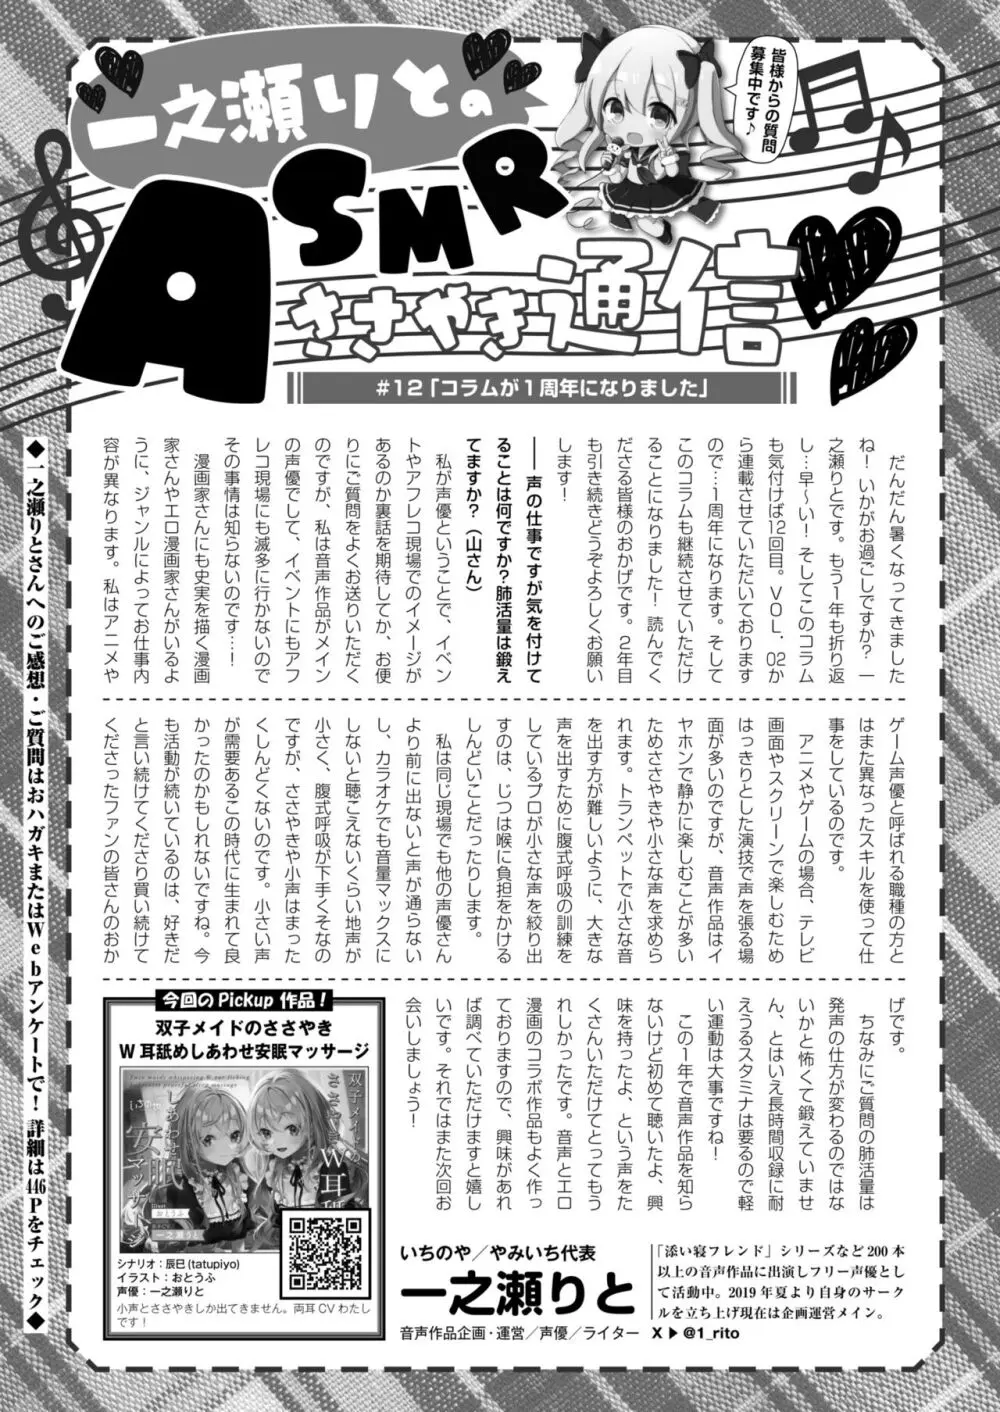 一之瀬りとの
ASMR
ささやき通信
皆様からの質問
募集中です♪
#12「コラムが1周年になりました」
だんだん暑くなってきました
ね！いかがお過ごしですか？一
之瀬りとです。もう1年も折り返
し…早〜い！そしてこのコラム
も気付けば12回目。VOL.02か
ら連載させていただいております
ので…1周年になります。そして
このコラムも継続させていただけ
ることになりました！読んでく
ださる皆様のおかげです。2年目
も引き続きどうぞよろしくお願い
します！
――声の仕事ですが気を付けて
ることは何ですか？肺活量は鍛え
てますか？（山さん）
私が声優ということで、イベン
トやアフレコ現場でのイメージが
あるのか裏話を期待してか、お便
りにご質問をよくお送りいただく
のですが、私は音声作品がメイン
の声優でして、イベントにもアフ
レコ現場にも滅多に行かないので
その事情は知らないのです…！
漫画家さんにも史実を描く漫画
家さんやエロ漫画家さんがいるよ
うに、ジャンルによってお仕事内
容が異なります。私はアニメや
ゲーム声優と呼ばれる職種の方と
はまた異なったスキルを使って仕
事をしているのです。
アニメやゲームの場合、テレビ
画面やスクリーンで楽しむため
はっきりとした演技で声を張る場
面が多いのですが、音声作品はイ
ヤホンで静かに楽しむことが多い
ためささやきや小さな声を求めら
れます。トランペットで小さな音
を出す方が難しいように、大きな
声を出すために腹式呼吸の訓練を
しているプロが小さな声を絞り出
すのは、じつは喉に負担をかける
しんどいことだったりします。
私は同じ現場でも他の声優さん
より前に出ないと声が通らない
し、カラオケでも音量マックスに
しないと聴こえないくらい地声が
小さく、腹式呼吸が下手くそなの
ですが、ささやきや小声はまった
くしんどくないのです。小さい声
が需要あるこの時代に生まれて良
かったのかもしれないですね。今
も活動が続いているのは、好きだ
と言い続けてくださり買い続けて
くださったファンの皆さんのおか
げです。
ちなみにご質問の肺活量は
発声の仕方が変わるのではな
いかと怖くて鍛えていませ
ん、とはいえ長時間収録に耐
えうるスタミナは要るので軽
い運動は大事ですね！
この1年で音声作品を知ら
ないけど初めて聴いたよ、興
味を持ったよ、という声をた
くさんいただけてとってもう
れしかったです。音声とエロ
漫画のコラボ作品もよく作っ
ておりますので、興味があれ
ば調べていただけますと嬉し
いです。それではまた次回お
会いしましょう！
今回のPickup作品！
双子メイドのささやき
W耳舐めしあわせ安眠マッサージ
双子メイドの
ささやきW耳舐め
しあわせ
安眠
マッサージ
Illust
おとうふ
一之瀬りと
シナリオ：辰巳(tatupiyo)
イラスト：おとうふ
声優：一之瀬りと
小声とささやきしか出てきません。両耳CVわたし
です！
いちのや／やみいち代表
一之瀬りと
音声作品企画・運営／声優／ライター
「添い寝フレンド」シリーズなど200本
以上の音声作品に出演しフリー声優とし
て活動中。2019年夏より自身のサーク
ルを立ち上げ現在は企画運営メイン。
X▶@1_rito
◆一之瀬りとさんへのご感想・ご質問はおハガキまたはWebアンケートで！詳細は446Pをチェック◆